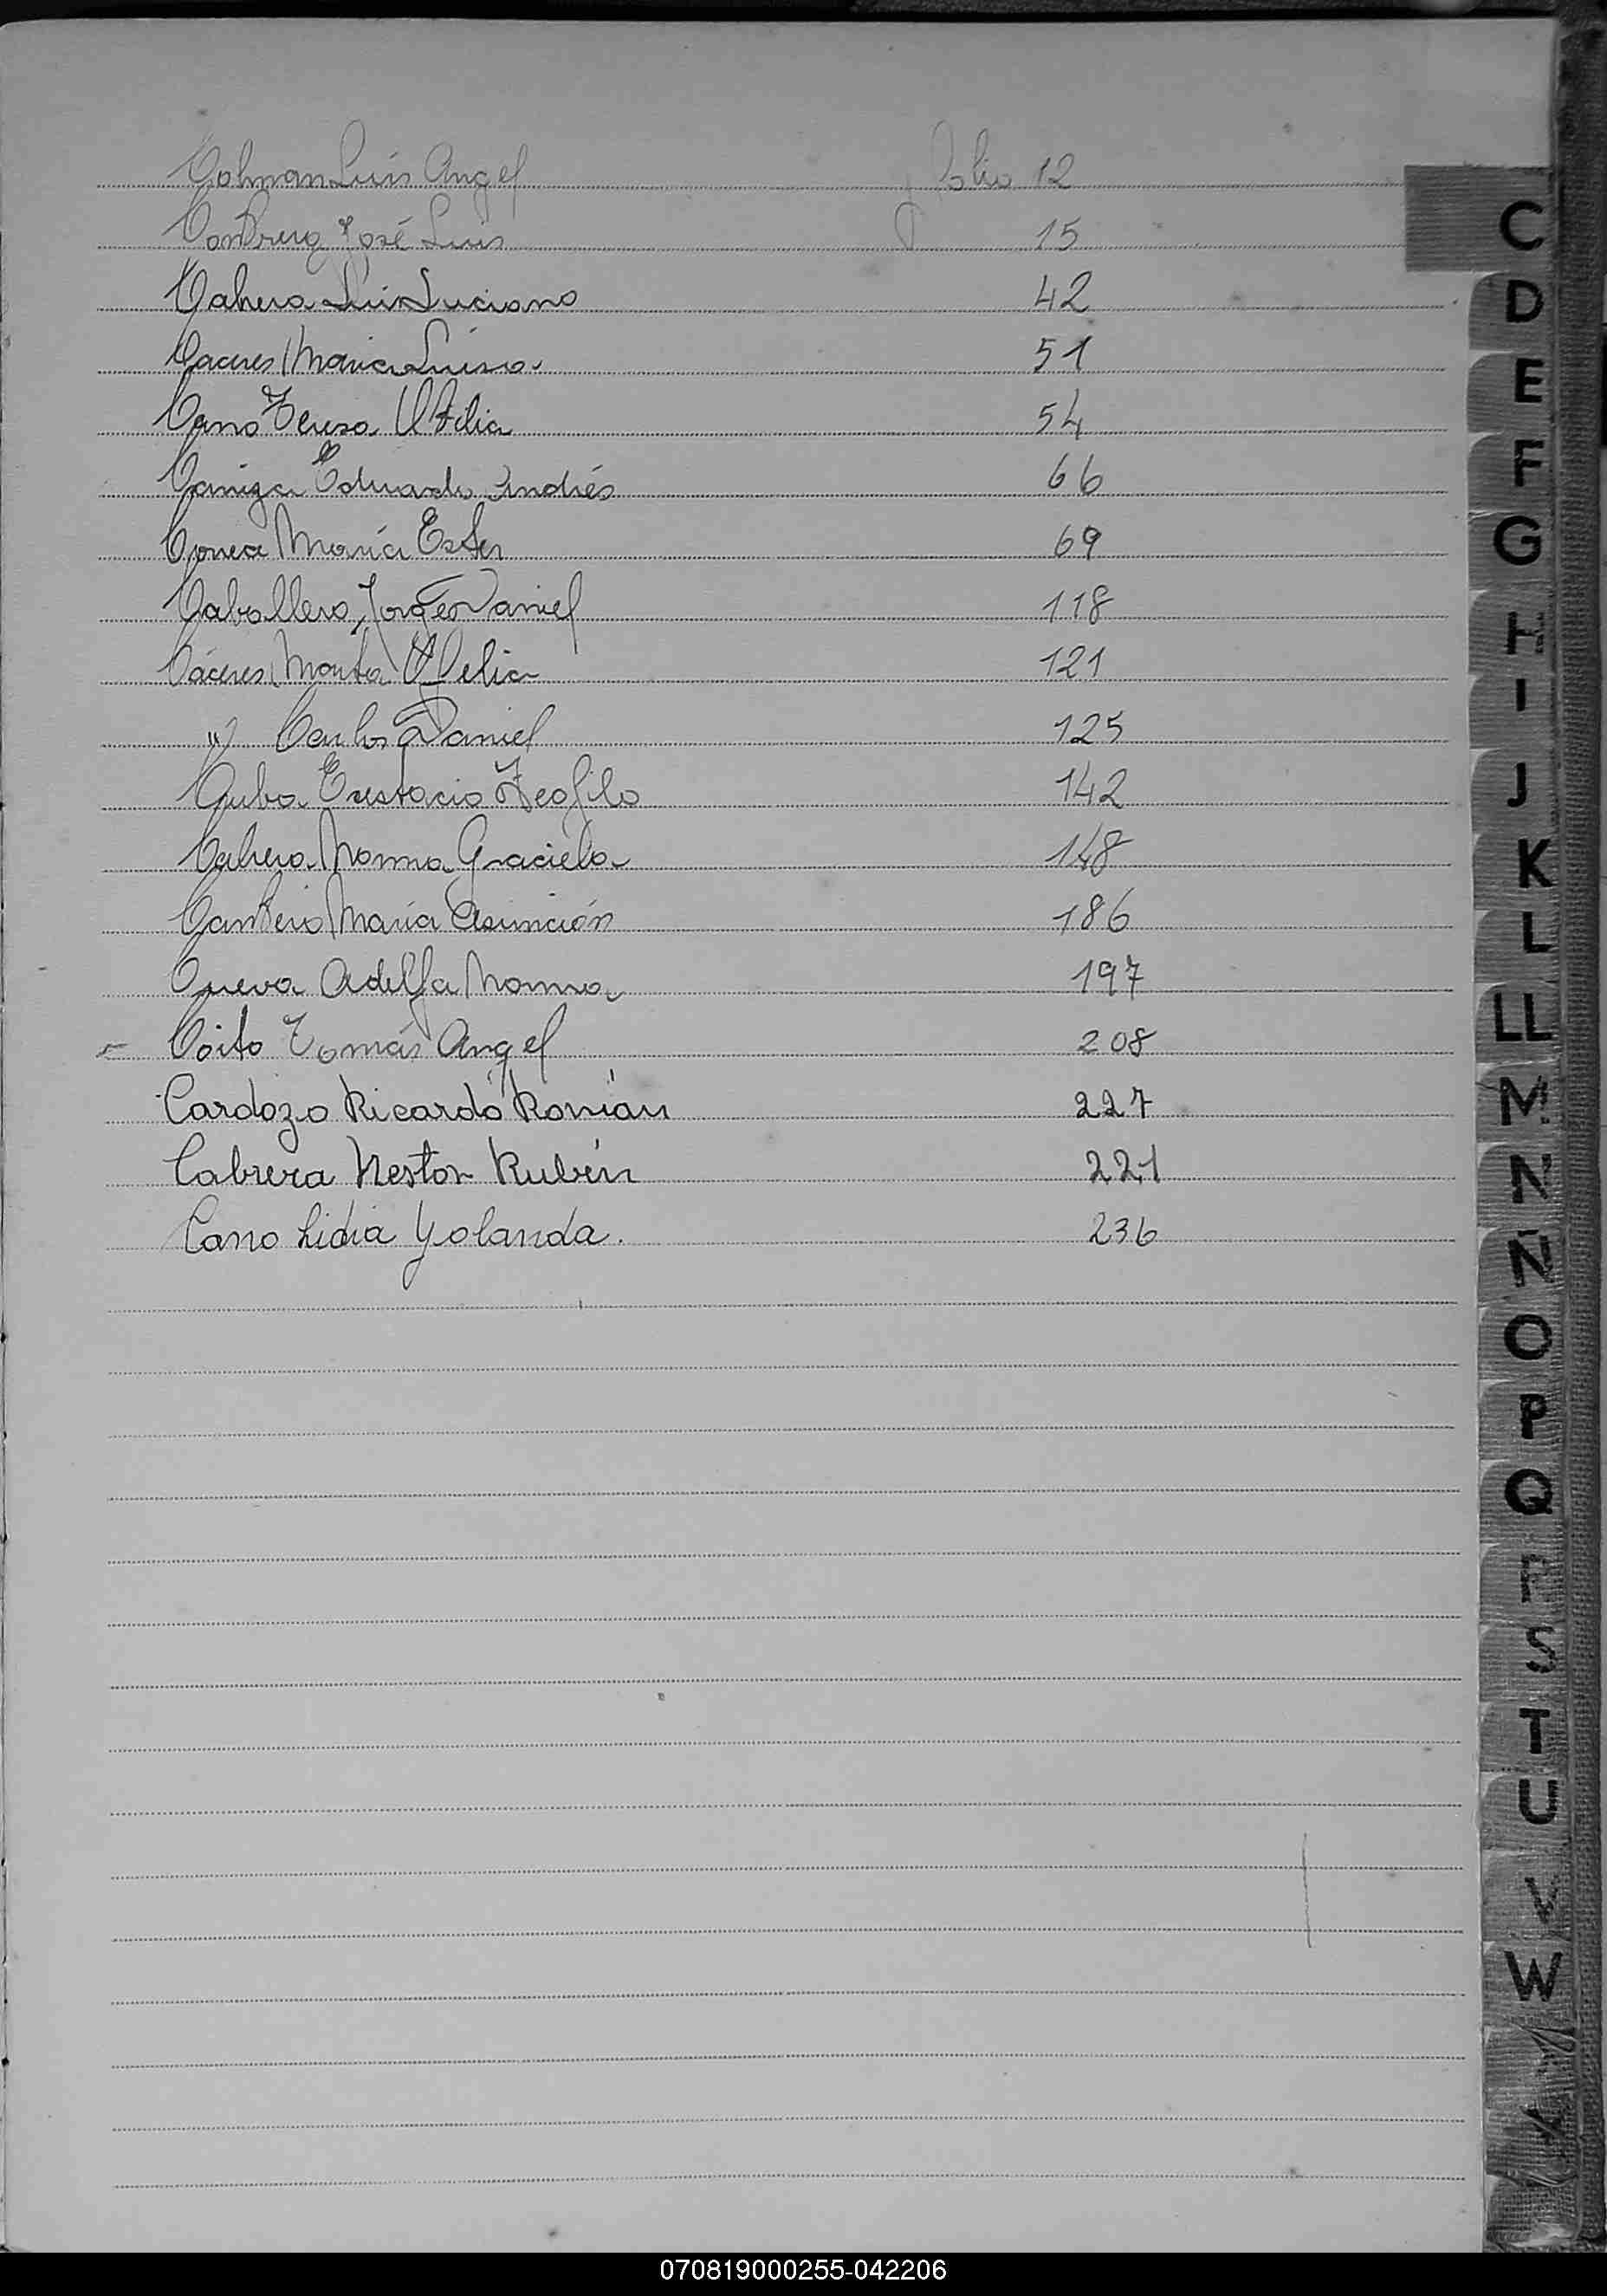 Colman Luis Angel folio 12
José Luis 15
Cabrera Luis Luciano 42
Caceres Maria Luisa 51
Cano Teresa Otilia 54
Caniza Eduardo Andrés 66
Correa María Ester 69
Caballero, Jorge Daniel 118
Cáceres Marta 121
" Carlos Daniel 125
Cuba Eustacio Teofilo 142
Cabrera Norma Graciela 148
Cantero María Asunción 186
Cueva Adelfa Norma 197
Coito Tomás Angel 208
Cardozo Ricardo Román 227
Cabrera Nestor Rubén 221
Cano Lidia Yolanda. 236
C
D
E
F
G
H
I
J
K
L
LL
M
N
Ñ
O
P
Q
R
S
T
U
V
W
070819000255-042206